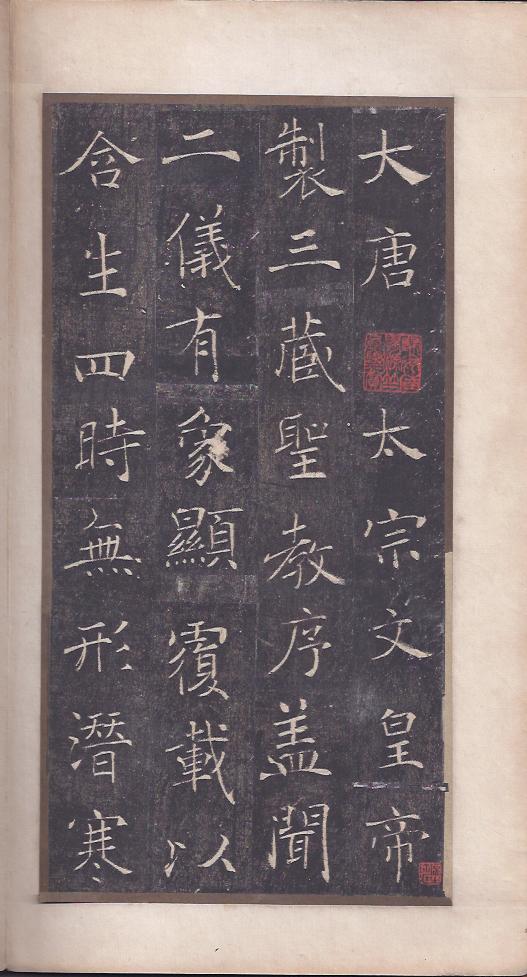 大唐太宗文皇帝
製三藏聖教序盖聞
二儀有象顯覆載以
含生四時無形潛寒